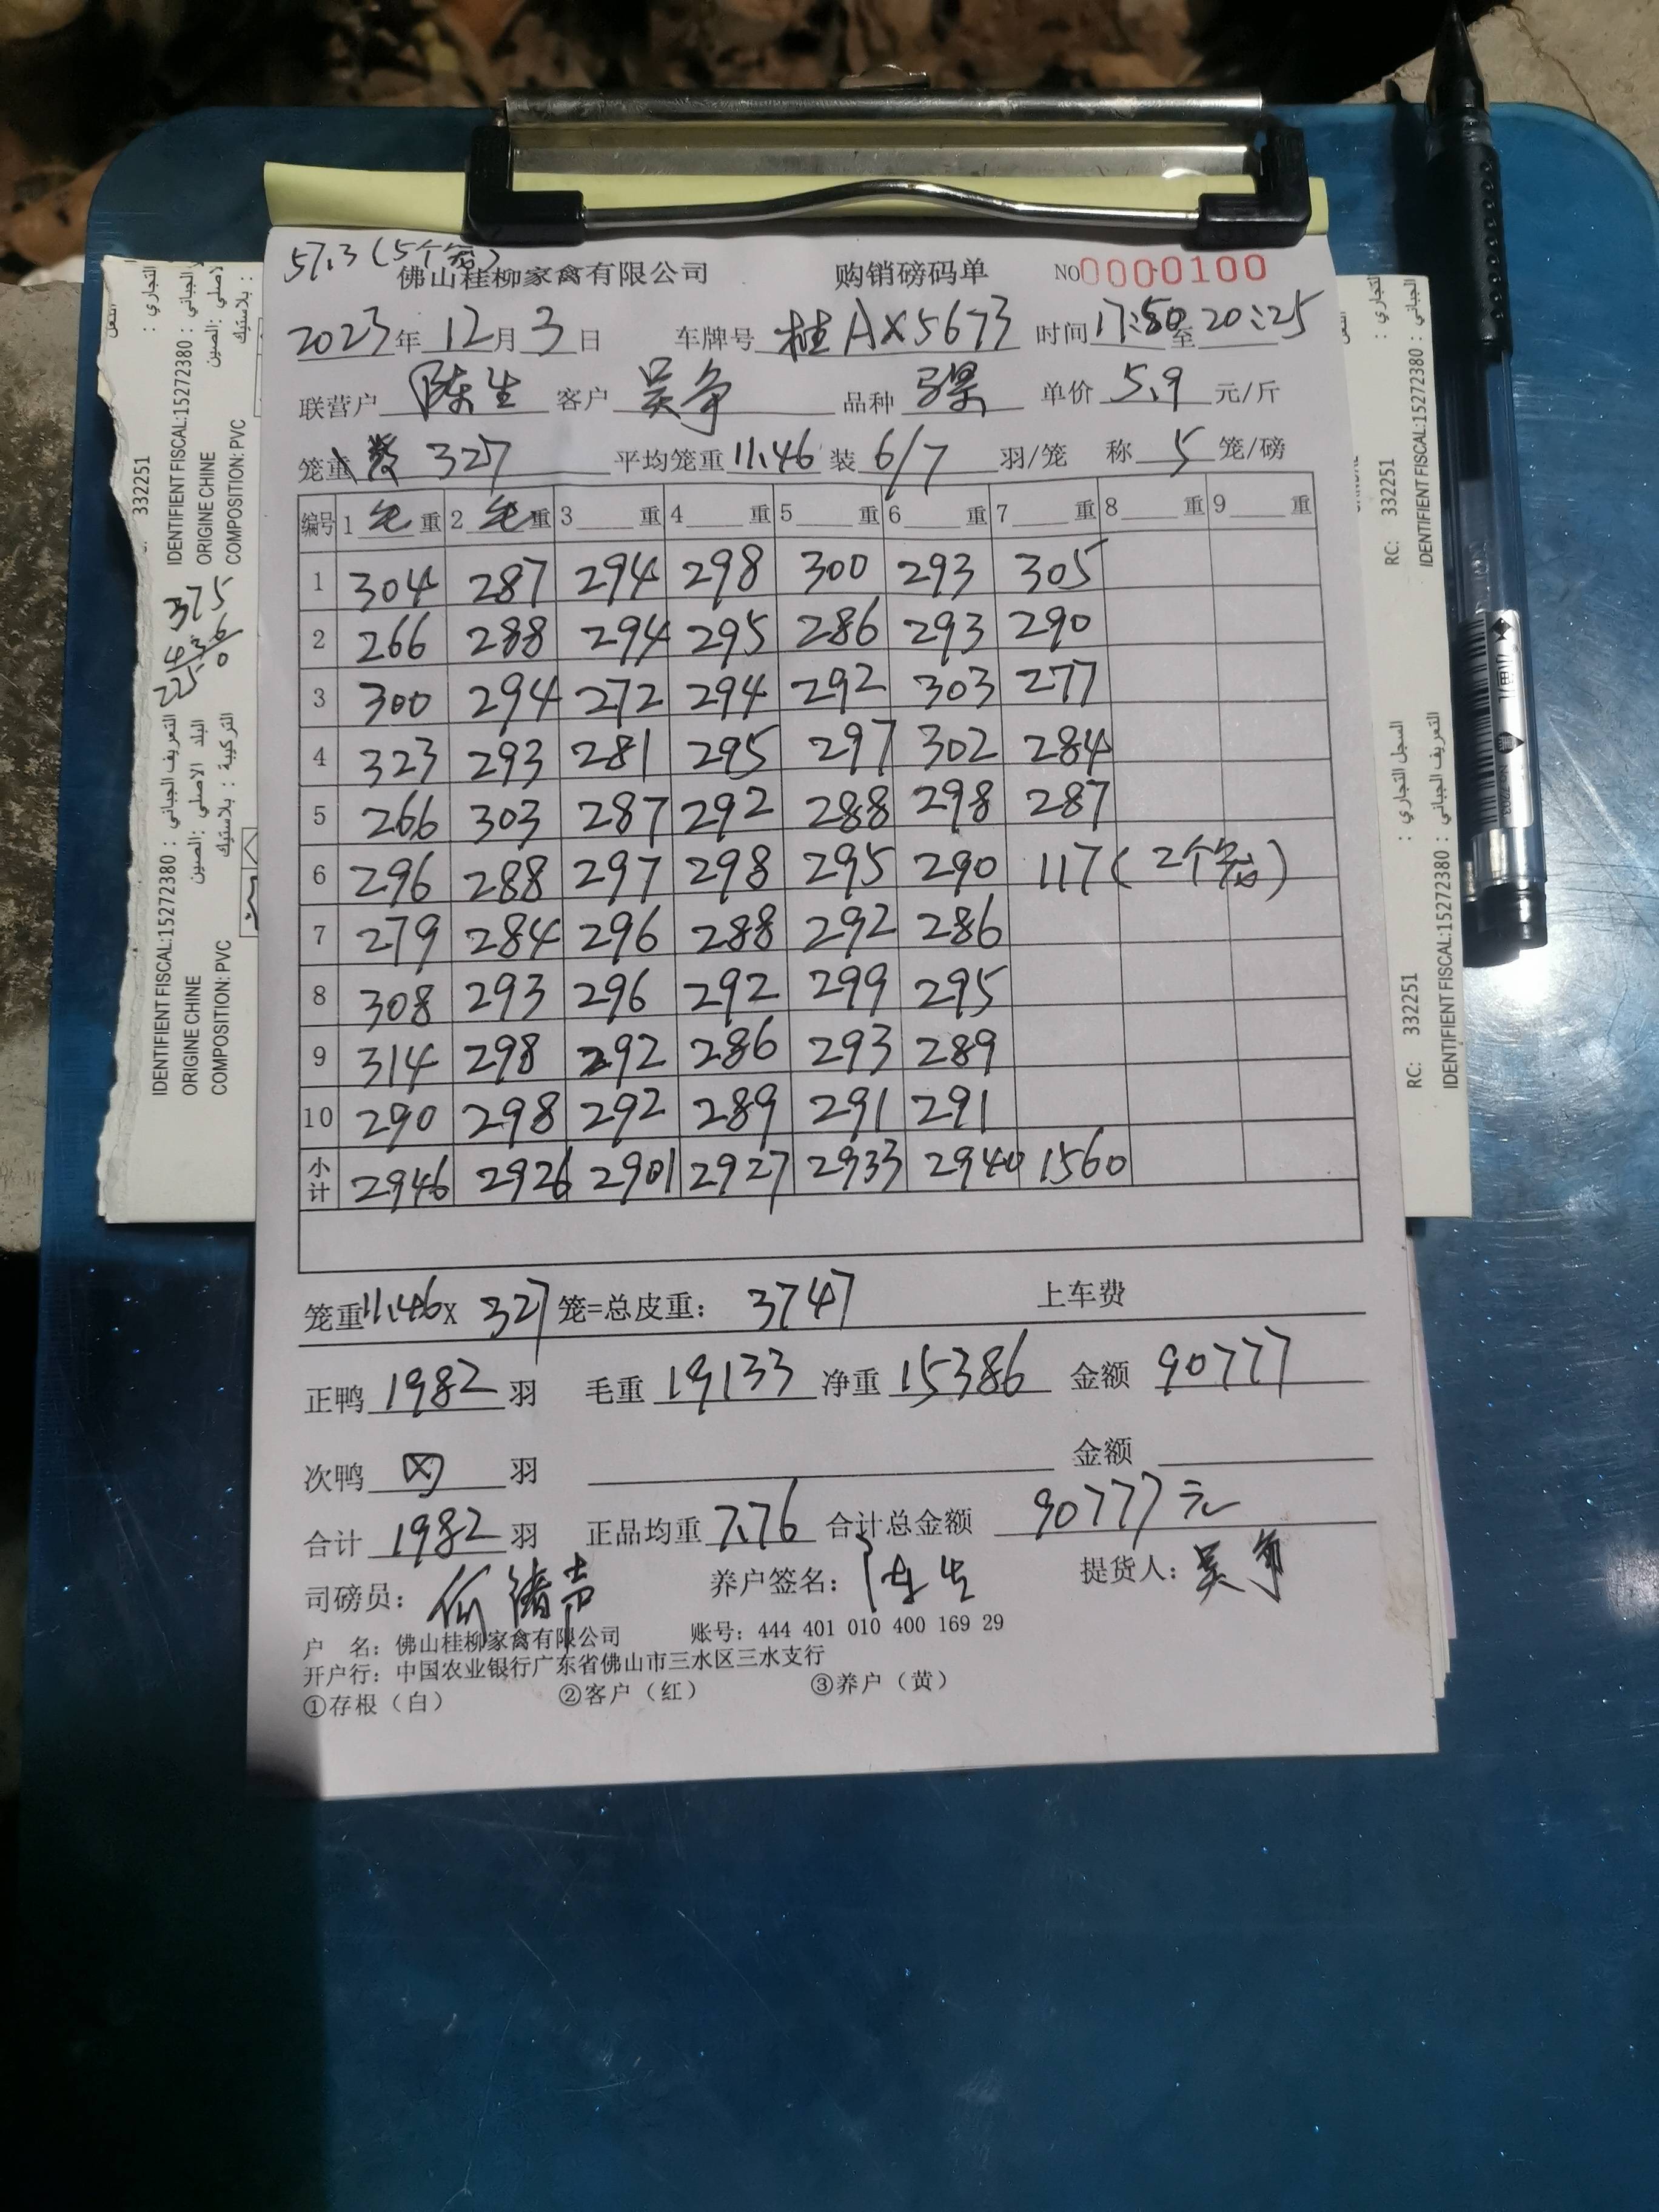 57.3（5个笼）
佛山桂柳家禽有限公司 购销磅码单 NO0000100
2023年12月3日 车牌号 桂AX5673 时间17:50至20:25
联营户 陈生 客户 吴争 品种 单价 5.9 元/斤
笼重 327 平均笼重 11.46 装 6/7 羽/笼 称 5 笼/磅
编号 1毛重 2毛重 3重 4重 5重 6重 7重 8重 9重
1 304 287 294 298 300 293 305
2 266 288 294 295 286 293 290
3 300 294 272 294 292 303 277
4 323 293 281 295 297 302 284
5 266 303 287 292 288 298 287
6 296 288 297 298 295 290 117（2个笼）
7 279 284 296 288 292 286
8 308 293 296 292 299 295
9 314 298 292 286 293 289
10 290 298 292 289 291 291
小计 2946 2926 2901 2927 2933 2940 1560
笼重11.46X 327笼=总皮重： 3747 上车费
正鸭 1982 羽 毛重 19133 净重 15386 金额 90777
次鸭 羽 金额
合计 1982 羽 正品均重 7.76 合计总金额 90777元
司磅员： 养户签名：陈生 提货人：吴争
户 名：佛山桂柳家禽有限公司 账号：444 401 010 400 169 29
开户行：中国农业银行广东省佛山市三水区三水支行
①存根（白） ②客户（红） ③养户（黄）
332251
IDENTIFIENT FISCAL:15272380 : التعريف الجبائي
ORIGINE CHINE البلد الاصلي :الصين
COMPOSITION: PVC التركيبة : بلاستيك
375
RC: 332251 السجل التجاري :
IDENTIFIENT FISCAL:15272380 : التعريف الجبائي
RC: 332251
IDENTIFIENT FISCAL:15272380